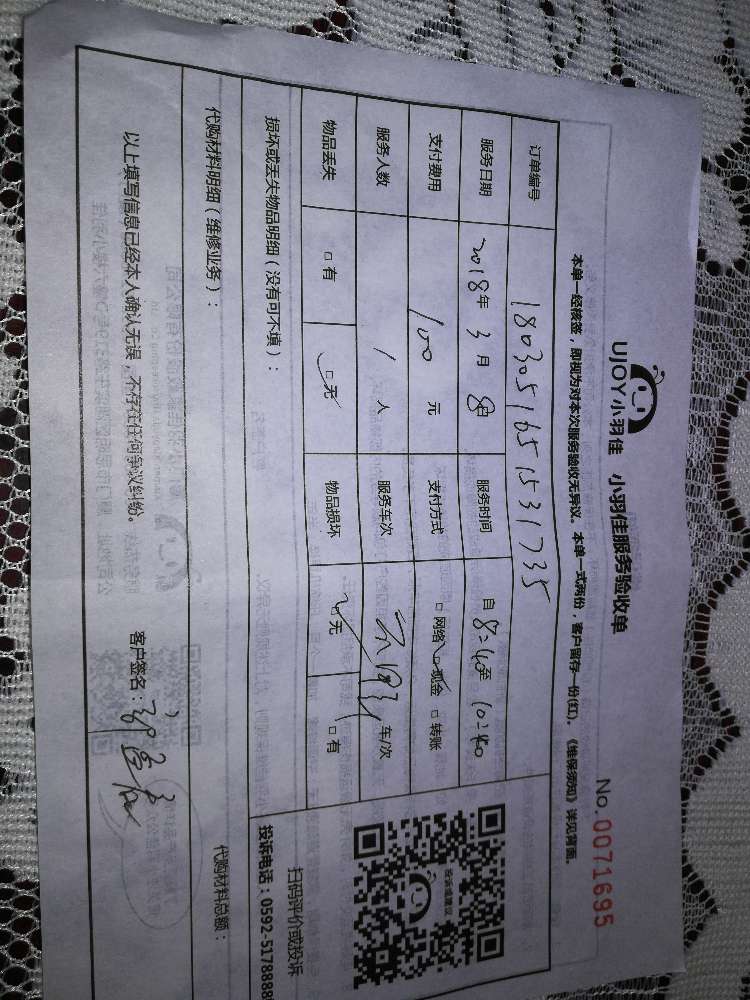 UJOY小羽佳 小羽佳服务验收单
No. 0071695
本单一经核签，即视为对本次服务验收无异议。本单一式两份，客户留存一份(红)。《维保须知》详见背面。
订单编号 1803051651531735
服务日期 2018年 3月 8日 服务时间 自 8:40至 10:40
支付费用 100 元 支付方式 □网络 □现金 □转账
服务人数 1 人 服务车次 车/次
物品丢失 □有 □无 物品损坏 □无 □有
损坏或丢失物品明细（没有可不填）：
扫码评价或投诉
投诉电话：0592-5178888
代购材料明细（维修业务）：
代购材料总额：
以上填写信息已经本人确认无误，不存在任何争议纠纷。 客户签名：